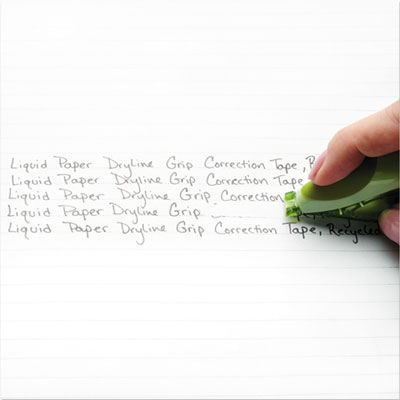 Liquid Paper Dryline Grip Correction Tape, R
Liquid Paper Dryline Grip Correction Tape
Liquid Paper Dryline Grip Correction
Liquid Paper Dryline Grip
Liquid Paper Dryline Grip Correction Tape, Recycled